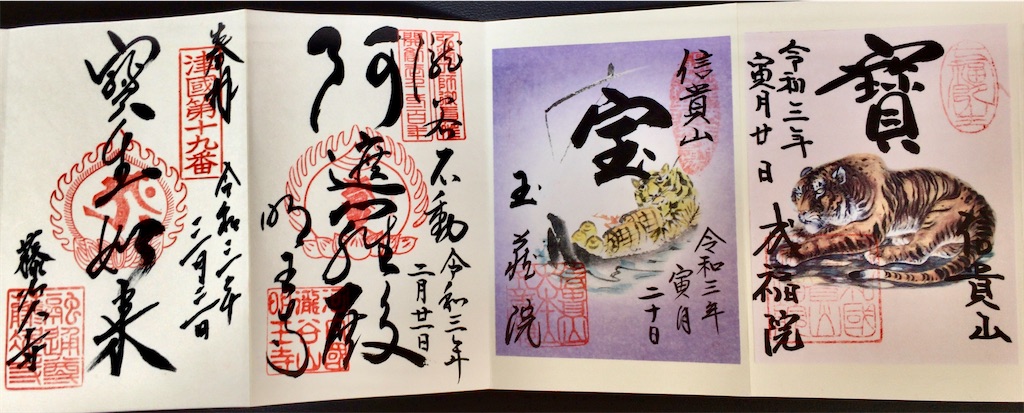 信貴山
寶
令和三年
寅月廿日
成福院
信貴山
宝
令和三年
寅月
二十日
玉蔵院
瀧谷不動
令和三年
二月廿一日
明王寺
瀧谷山
奉拝
津國第十九番
寳生如来
令和三年
藤次寺